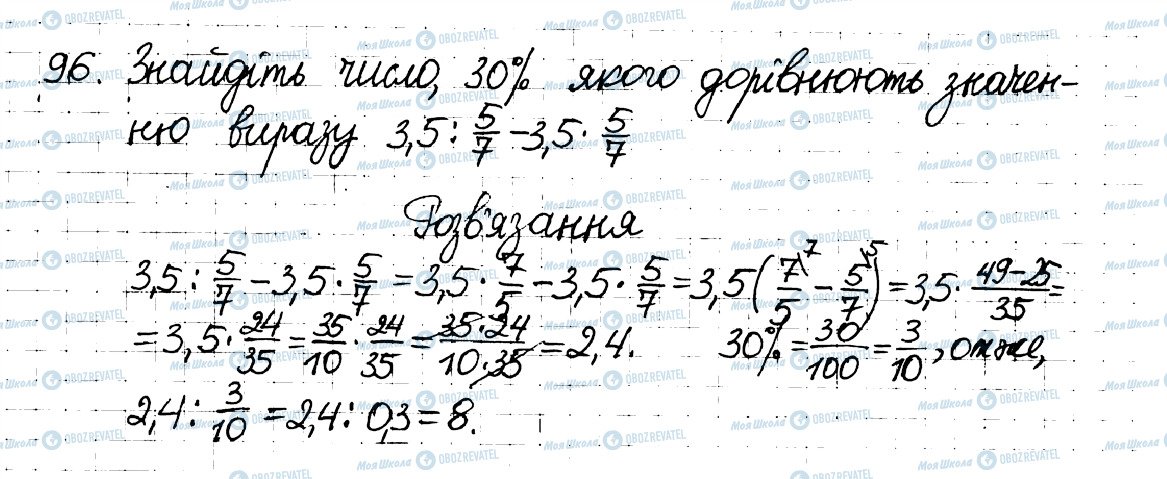 96. Знайдіть число, 30% якого дорівнюють значен-
ню виразу 3,5 : 5/7 - 3,5 · 5/7
Розв'язання
3,5 : 5/7 - 3,5 · 5/7 = 3,5 · 7/5 - 3,5 · 5/7 = 3,5 (7/5 \7 - 5/7 \5) = 3,5 · (49-25)/35 =
= 3,5 · 24/35 = 35/10 · 24/35 = (35·24)/(10·35) = 2,4. 30% = 30/100 = 3/10, отже,
2,4 : 3/10 = 2,4 : 0,3 = 8.